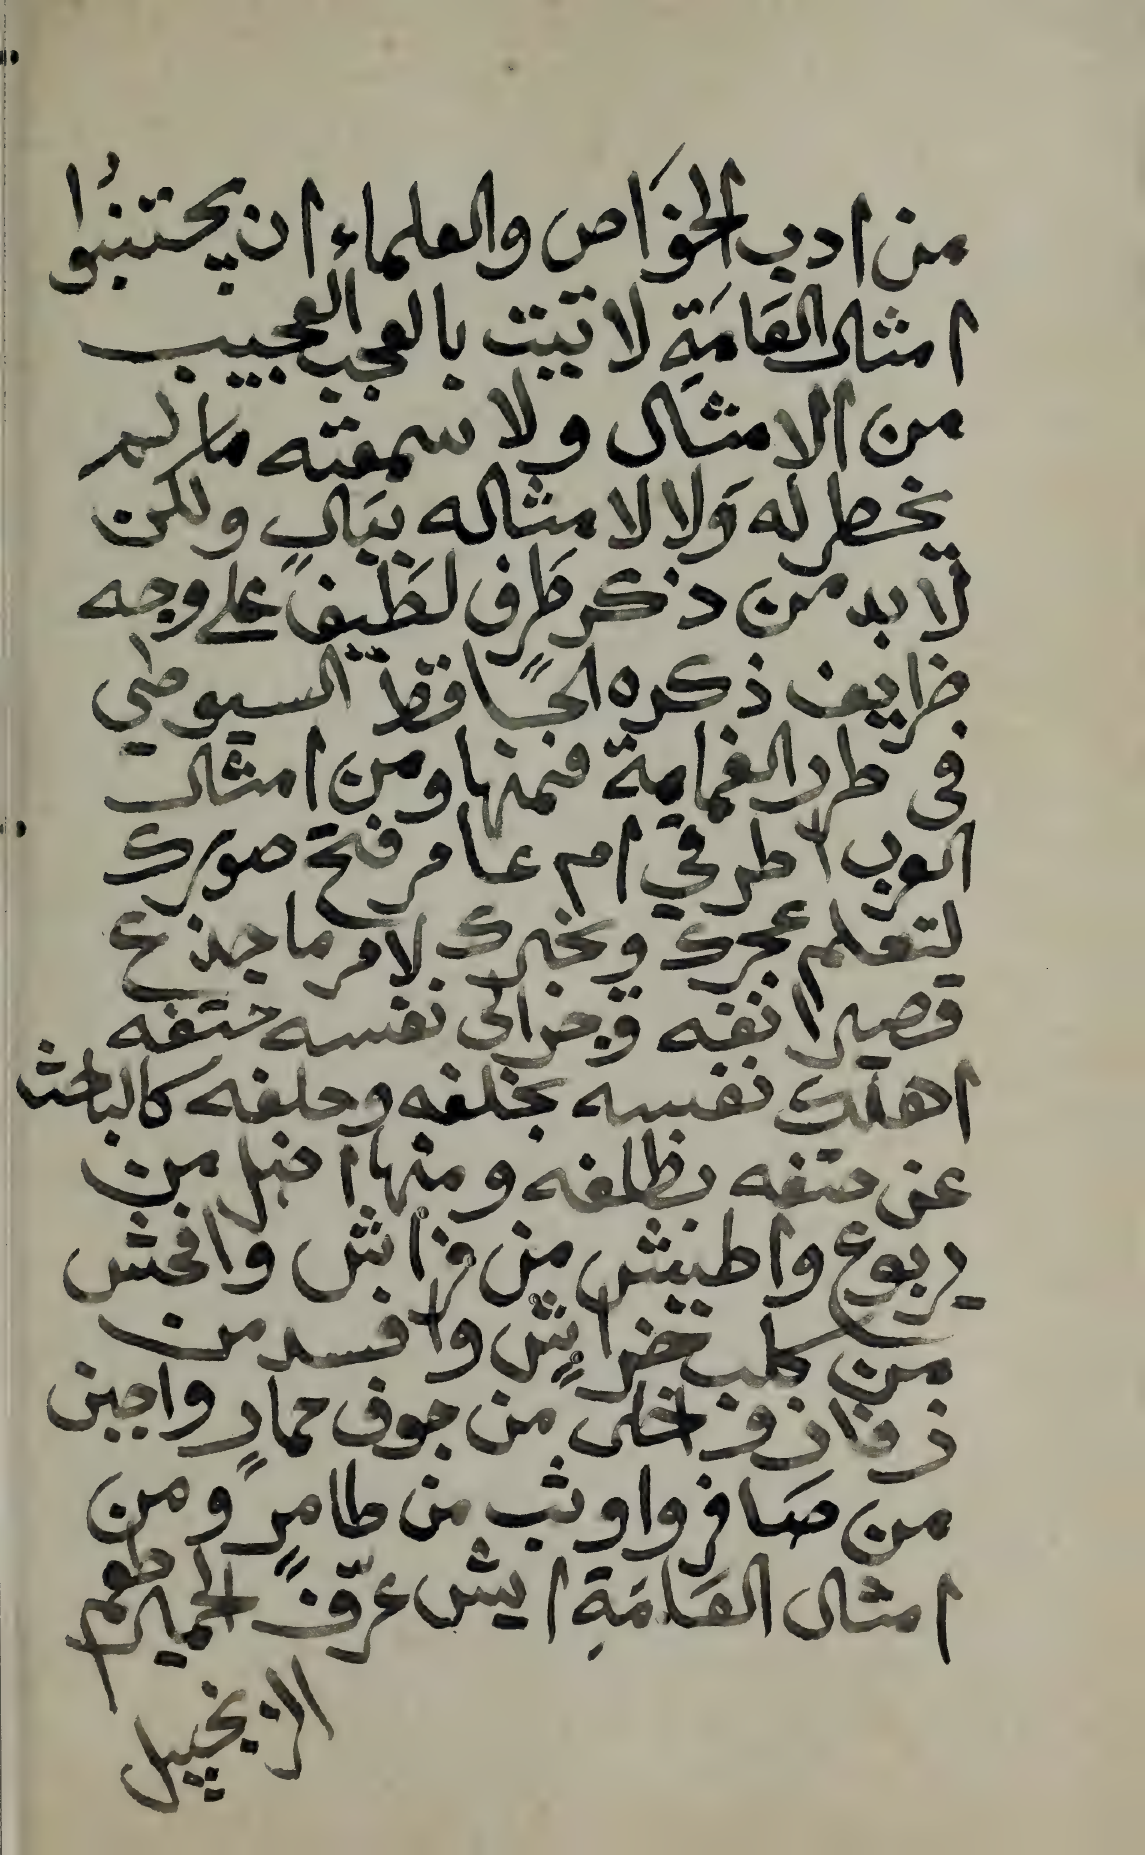 من ادب الخَوَاص والعلماءِ ان يجتنبُوا
امثال العَامَةِ لاتيت بالعجب العجيب
من الامثال ولا سمعته مالم
يخطر له وَلا لامثاله ببَالٍ ولكن
لا بد من ذكر طَرفٍ لَطيف على وجه
ظرايف ذكره الحافظ السيوطي
في طرد الغمامة فمنها ومن امثال
العرب اطرقي ام عامر فتح صورك
لتعلم عجرك وبجرك لامر ما جذع
قصيرا نفه وجر الى نفسه حتفه
اهلك نفسه بخلفه وحلفه كالباحث
عن حتفه بظلفه ومنها اضل من
يربوع واطيش من فراش وافحش
من كلب خراش وافسد من
واخلى من جوف حمارٍ واجبن
من صَافر واوثب من طامرٍ ومن
امثال العَامَةِ ايش عرّف الحمير طعم
الزنجبيل